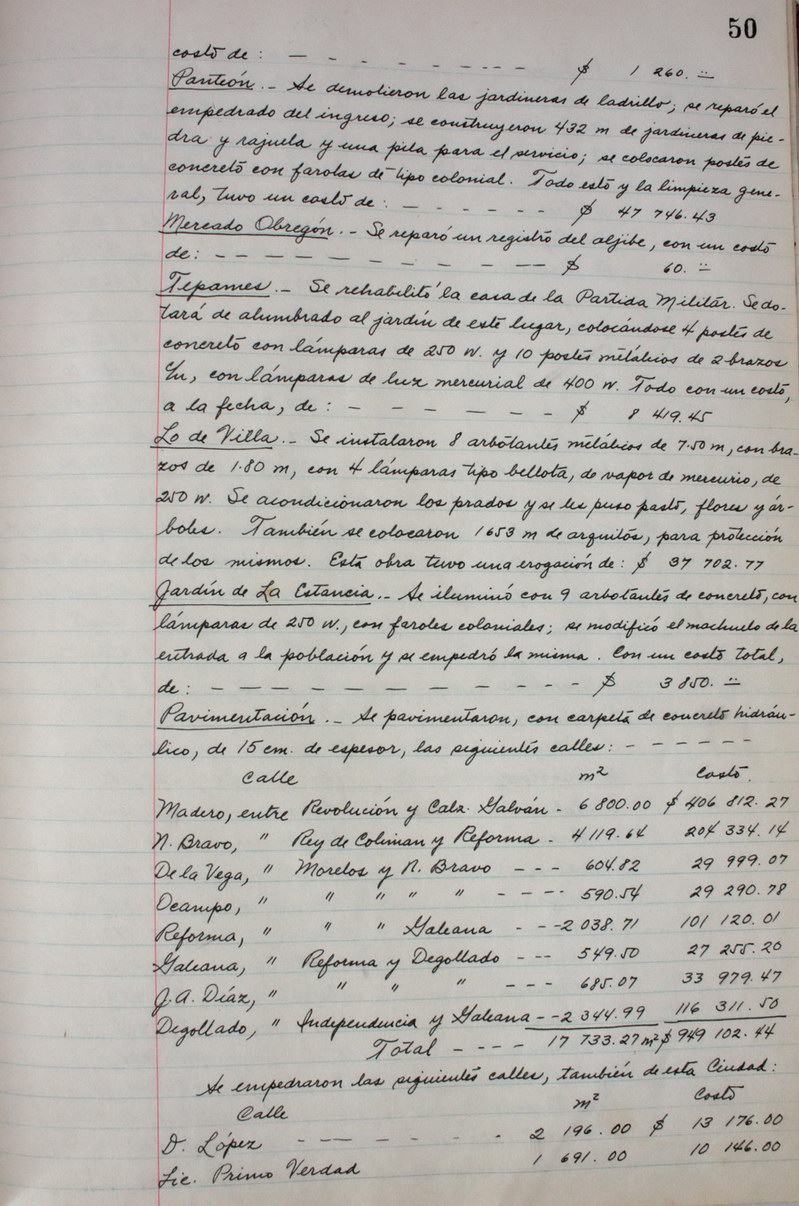 50
costó de : — - - - - - - - - $ 1 260. =
Panteón. - Se demolieron las jardineras de ladrillo; se reparó el
empedrado del ingreso; se construyeron 432 m de jardineras de pie-
dra y rajuela y una pila para el servicio; se colocaron postes de
concreto con farolas de tipo colonial. Todo esto y la limpieza gene-
ral, tuvo un costo de : - - - - - - $ 47 746.43
Mercado Obregón. - Se reparó un registro del aljibe, con un costo
de: - - - - - - - - - - - $ 60. =
Tepames. - Se rehabilitó la casa de la Partida Militar. Se do-
tará de alumbrado al jardín de este lugar, colocándose 4 postes de
concreto con lámparas de 250 W. y 10 postes metálicos de 2 brazos
c/u, con lámparas de luz mercurial de 400 W. Todo con un costo,
a la fecha, de : - - - - - - - $ 8 419.45
Lo de Villa. - Se instalaron 8 arbotantes metálicos de 7.50 m, con bra-
zos de 1.80 m, con 4 lámparas tipo bellota, de vapor de mercurio, de
250 W. Se acondicionaron los prados y se les puso pasto, flores y ár-
boles. También se colocaron 1653 m de arquitos, para protección
de los mismos. Esta obra tuvo una erogación de : $ 37 702.77
Jardín de La Estancia. - Se iluminó con 9 arbotantes de concreto, con
lámparas de 250 W., con faroles coloniales; se modificó el machuelo de la
entrada a la población y se empedró la misma. Con un costo total,
de : - - - - - - - - - - - - $ 3 850. =
Pavimentación. - Se pavimentaron, con carpeta de concreto hidráu-
lico, de 15 cm. de espesor, las siguientes calles : - - - - - -
Calle m² Costo.
Madero, entre Revolución y Calz. Galván - 6 800.00 $ 406 812.27
N. Bravo, " Rey de Coliman y Reforma - 4 119.64 204 334.14
De la Vega, " Morelos y N. Bravo - - - 604.82 29 999.07
Ocampo, " " " " " - - - - 590.54 29 290.78
Reforma, " " " Galeana - - - 2 038.71 101 120.01
Galeana, " Reforma y Degollado - - - 549.50 27 255.20
J. A. Díaz, " " " " - - - 685.07 33 979.47
Degollado, " Independencia y Galeana - - 2 344.99 116 311.50
Total - - - - 17 733.27 m² $ 949 102.44
Se empedraron las siguientes calles, también de esta Ciudad :
Calle m² Costo
D. López - - - - - - - - 2 196.00 $ 13 176.00
Lic. Primo Verdad 1 691.00 10 146.00